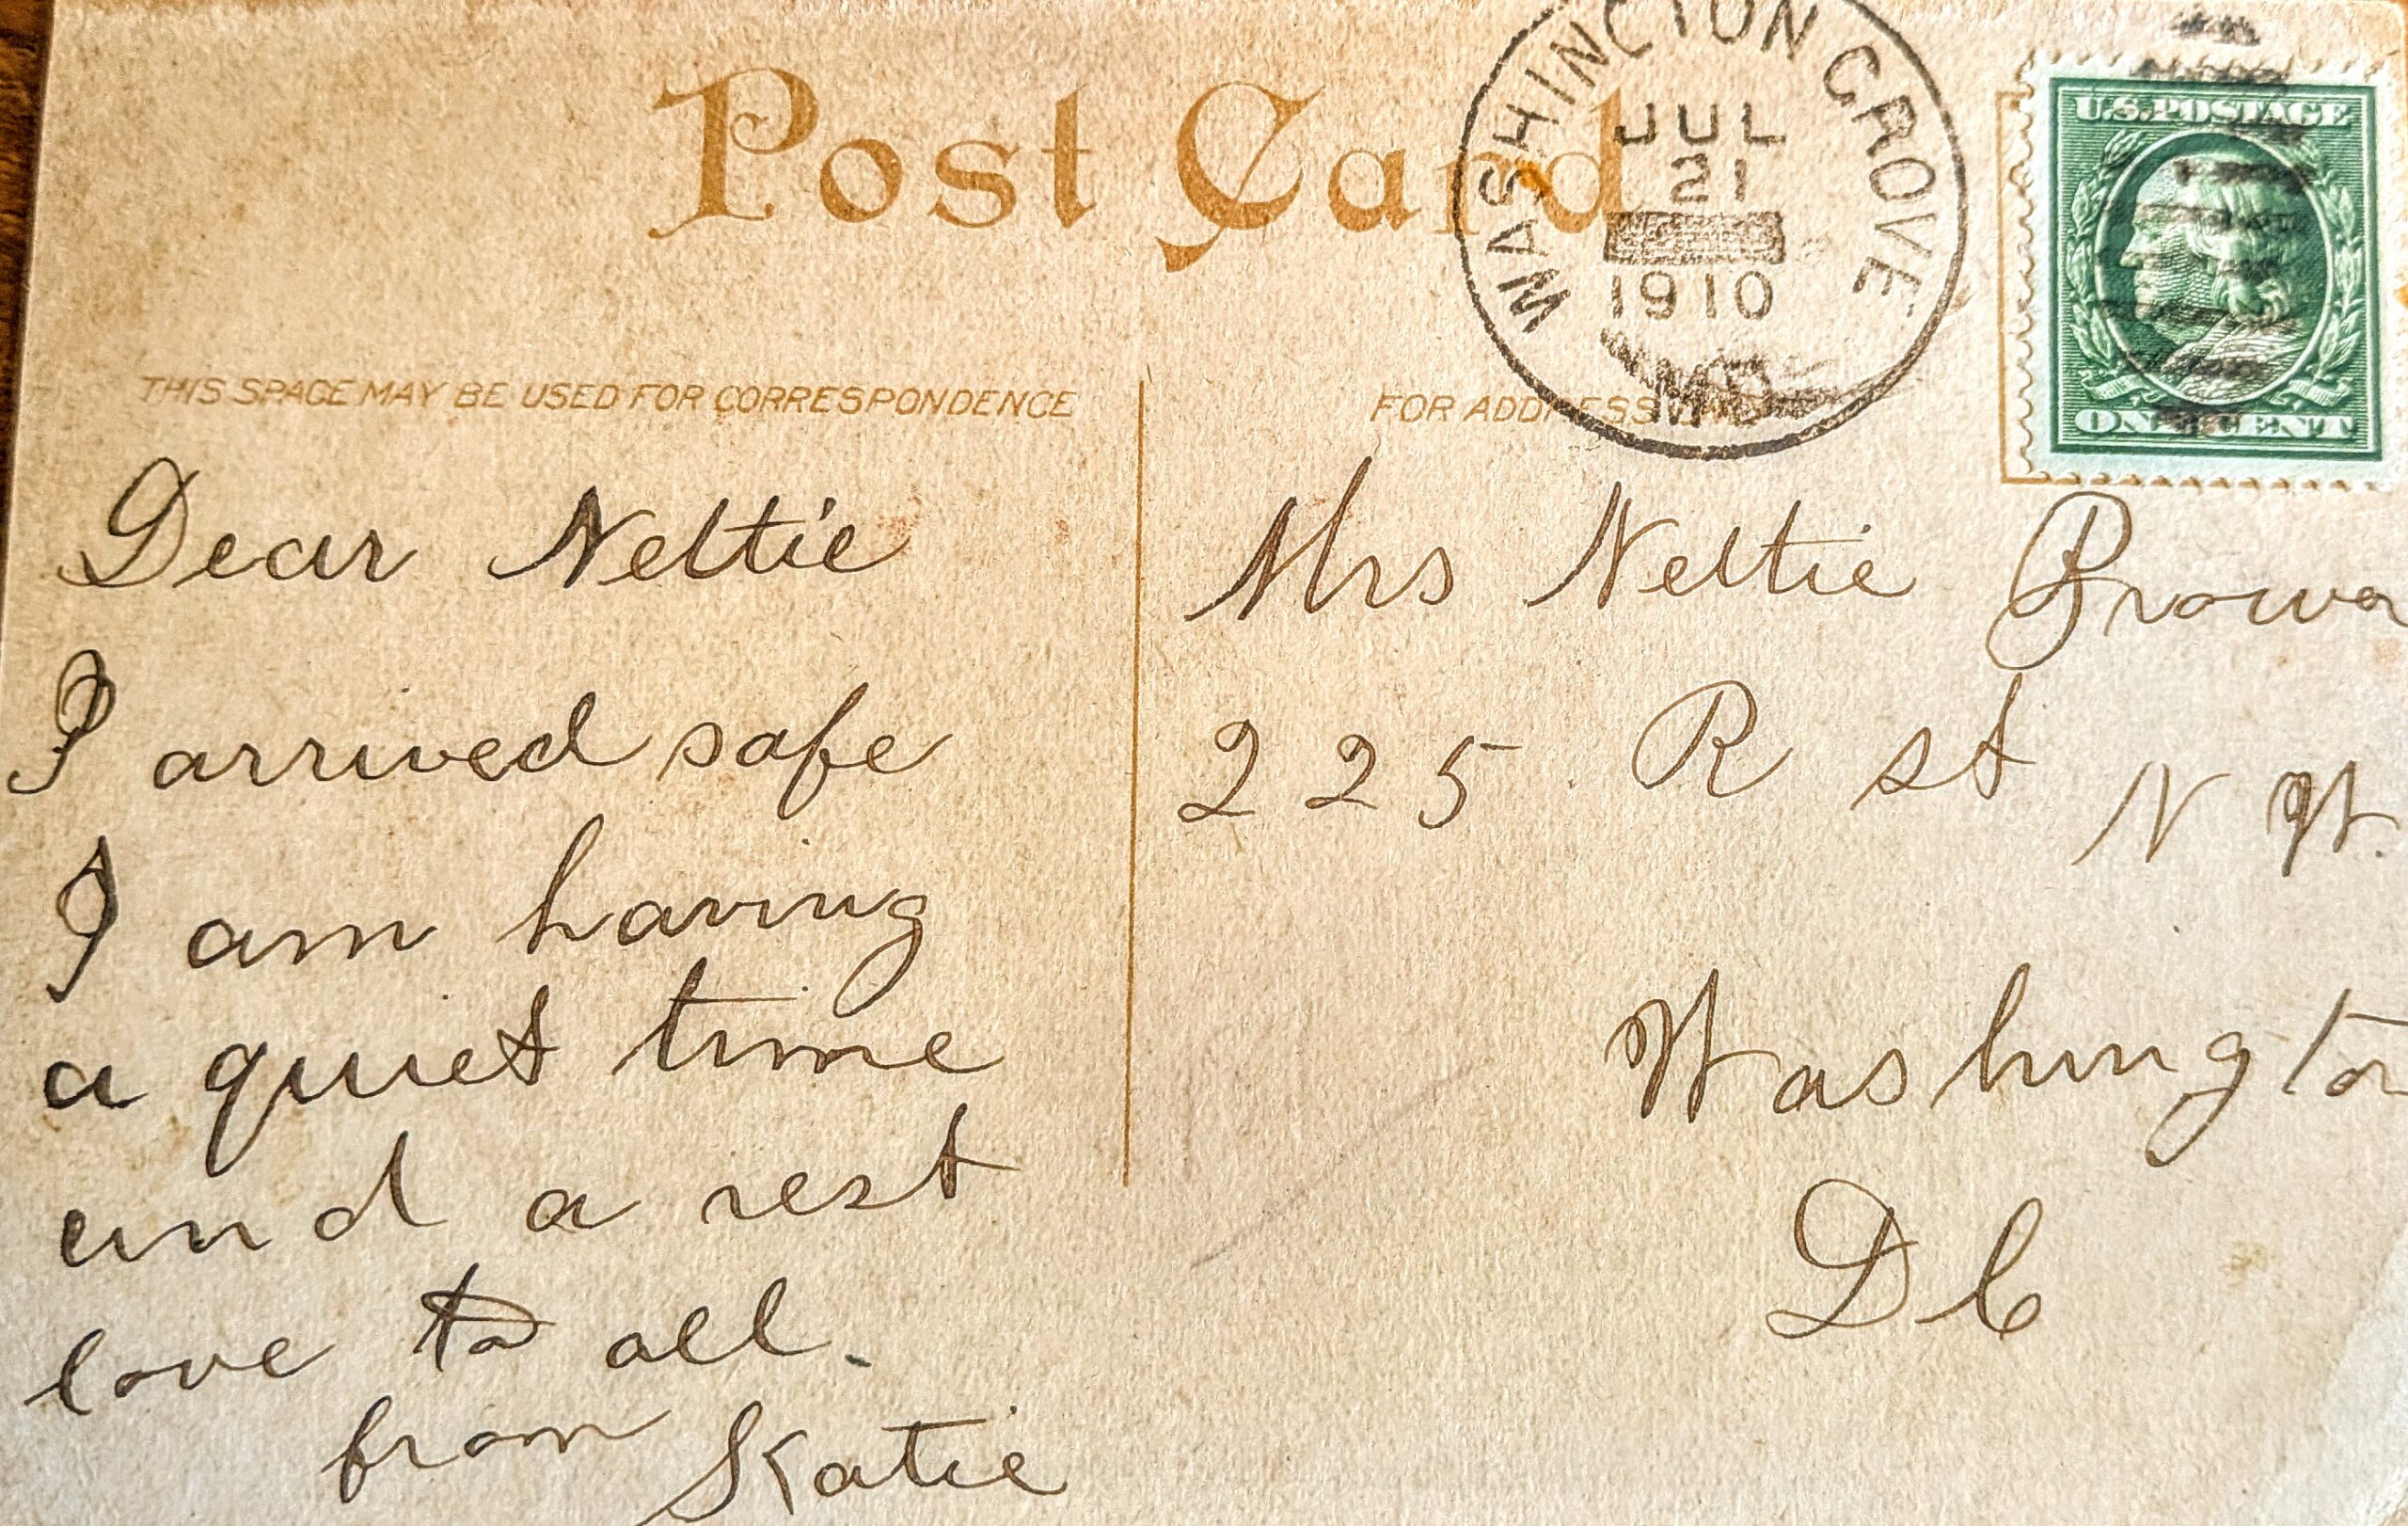 Post Card
WASHINGTON GROVE
JUL
21
1910
MD
U.S. POSTAGE
ONE CENT
THIS SPACE MAY BE USED FOR CORRESPONDENCE
FOR ADDRESS
Dear Nettie
I arrived safe
I am having
a quiet time
and a rest
love to all.
from Katie
Mrs Nettie Brown
225 R st N W.
Washington
D C